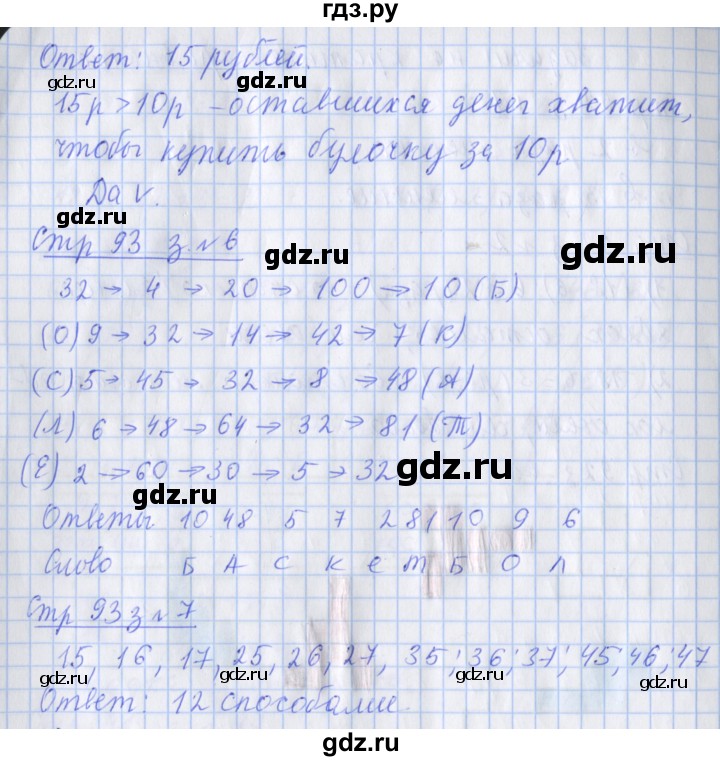 гдз.ру
Ответ: 15 рублей.
15р > 10р - оставшихся денег хватит,
чтобы купить булочку за 10р
Да v.
Стр 93 з. № 6
32 → 4 → 20 → 100 → 10 (Б)
(О) 9 → 32 → 14 → 42 → 7 (К)
(С) 5 → 45 → 32 → 8 → 48 (А)
(Л) 6 → 48 → 64 → 32 → 81 (Т)
(Е) 2 → 60 → 30 → 5 → 32
Ответы 10 48 5 7 2 81 10 9 6
Слово Б А С К Е Т Б О Л
Стр 93 з № 7
15, 16, 17, 25, 26, 27, 35; 36; 37; 45; 46; 47
Ответ: 12 способами.
gdz.ru
gdz.ru
gdz.ru
gdz.ru
gdz.ru
gdz.ru
gdz.ru
gdz.ru
gdz.ru
gdz.ru
gdz.ru
gdz.ru
gdz.ru
gdz.ru